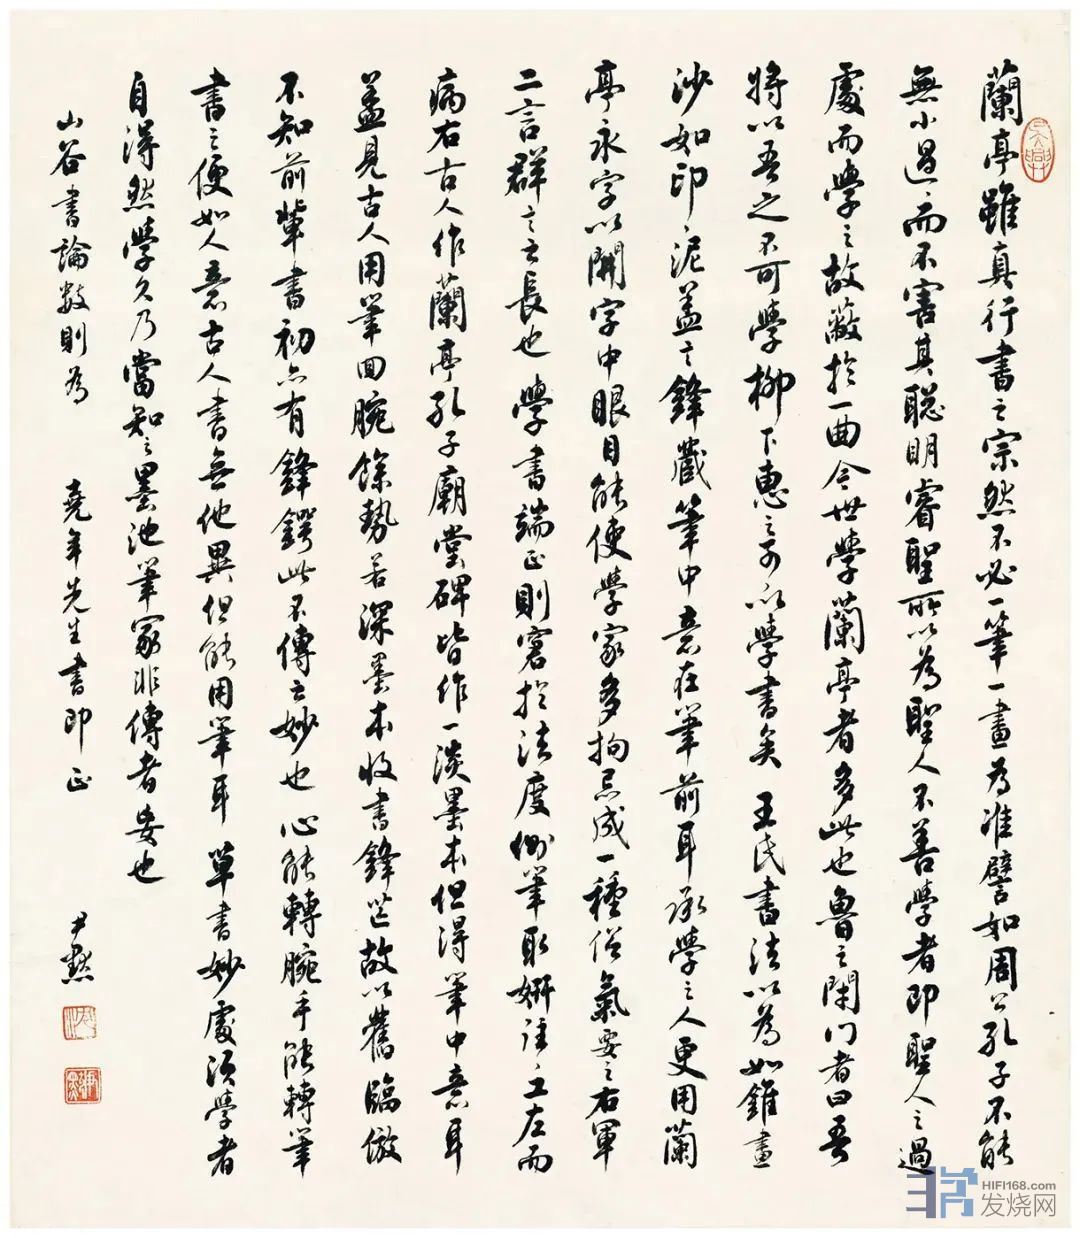 蘭亭雖真行書之宗然不必一筆一畫為准譬如周公孔子不能
無小過過而不害其聰明睿聖所以為聖人不善學者即聖人之過
處而學之故蔽於一曲今世學蘭亭者多此也魯之閉門者曰吾
將以吾之不可學柳下惠之可以學書矣 王氏書法以為如錐畫
沙如印印泥蓋言鋒藏筆中意在筆前耳承學之人更用蘭
亭永字以開字中眼目能使學家多拘忌成一種俗氣要之右軍
二言群言之長也 學書端正則窘於法度側筆取妍往往工左而
病右古人作蘭亭孔子廟堂碑皆作一淡墨本但得筆中意耳
蓋見古人用筆回腕餘勢若深墨本收書鋒芒故以舊臨倣
不知前輩書初亦有鋒鍔此不傳之妙也 心能轉腕手能轉筆
書之便如人意古人書無他異但能用筆耳 草書妙處須學者
自得然學久乃當知之墨池筆冢非傳者妄也
山谷書論數則為 堯年先生書即正 尹默
HIFI168.com
发烧网